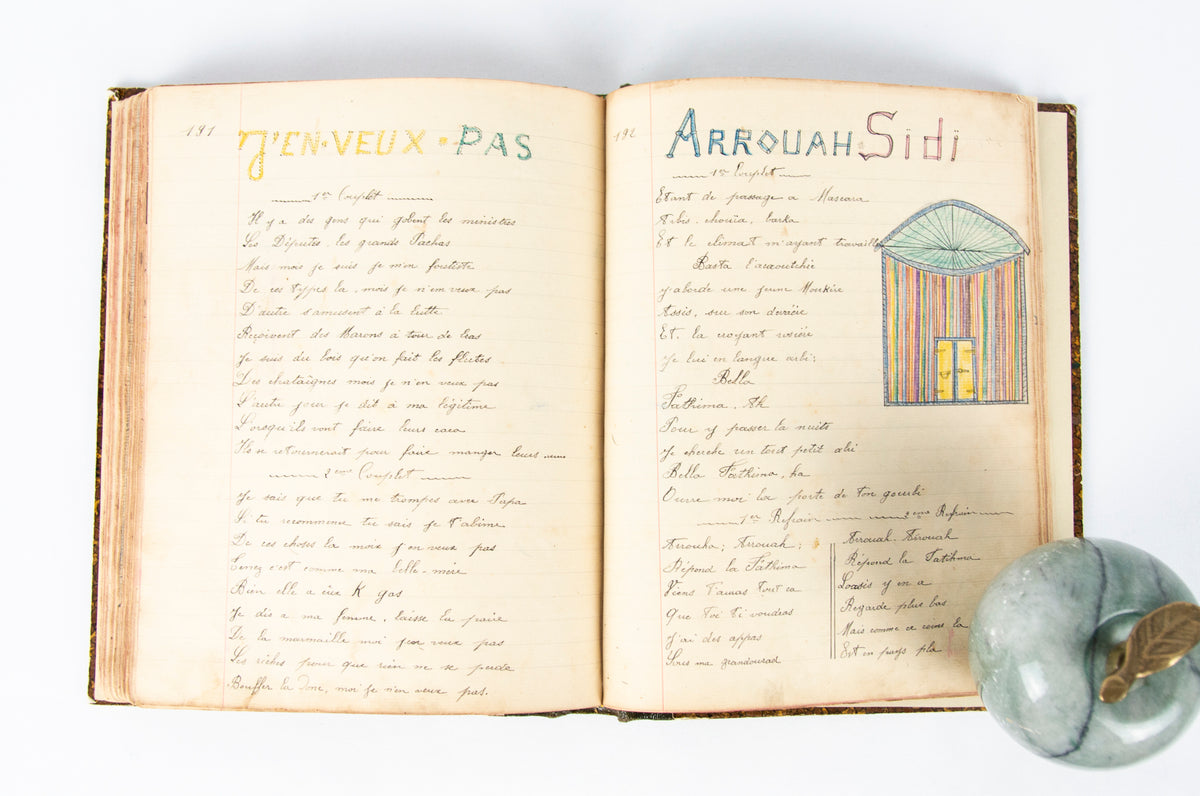 191
J'EN·VEUX·PAS
1er Couplet
Il y a des gens qui gobent les ministres
Les Députés, les grands Pachas
Mais moi je suis je m'en fortiste
De ces types la, moi je n'en veux pas
D'autre s'amusent à la lutte
Reçoivent des Marons à tour de bras
Je suis du bois qu'on fait les flûtes
Des chataîgnes moi je n'en veux pas
L'autre jour je dit à ma légitime
Lorsqu'ils vont faire leurs caca
Ils se retournerait pour faire manger leurs
2eme Couplet
Je sais que tu me trompes avec Papa
Si tu recommence tu sais je t'abime
De ces choses la moix j'en veux pas
Tenez c'est comme ma belle-mère
Bien elle a eûe K gas
Je dis a ma femme, laisse la faire
De la marmaille moi j'en veux pas
Les riches pour que rien ne se perde
Bouffer la donc, moi je n'en veux pas.
192
ARROUAH Sidi
1er Couplet
Etant de passage a Mascara
Arbis, chouïa, barka
Et le climat m'ayant travaillé
Basta l'acaoutchie
J'aborde une jeune Moukère
Assis, sur son derrière
Et, la croyant rosière
Je lui en langue arbi;
Bella
Fathima, Ah
Pour y passer la nuits
Je cherche un tout petit abi
Bella Fathima, ha
Ouvre moi la porte de ton gourbi
1er Refrain
Arrouha; Arrouah;
Répond la Fâthima
Viens t'auras tout ca
Que toi ti voudras
J'ai des appas
Sous ma grandourad
2eme Refrain
Arrouah Arrouah
Répond la Fatihma
Loasis y en a
Regarde plus bas
Mais comme ce coins la
Est en pays pla